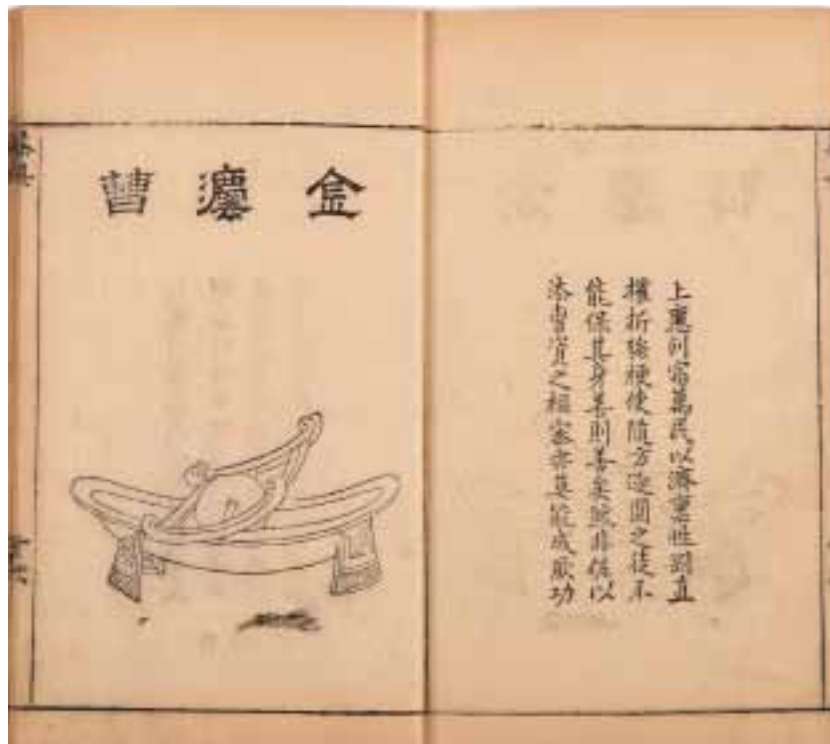 上應列宿萬民以濟稟性剛直
摧折強梗使隨方逐圓之徒不
能保其身善則善矣然非佐以
法曹資之樞密亦莫能成厥功
金灋曹